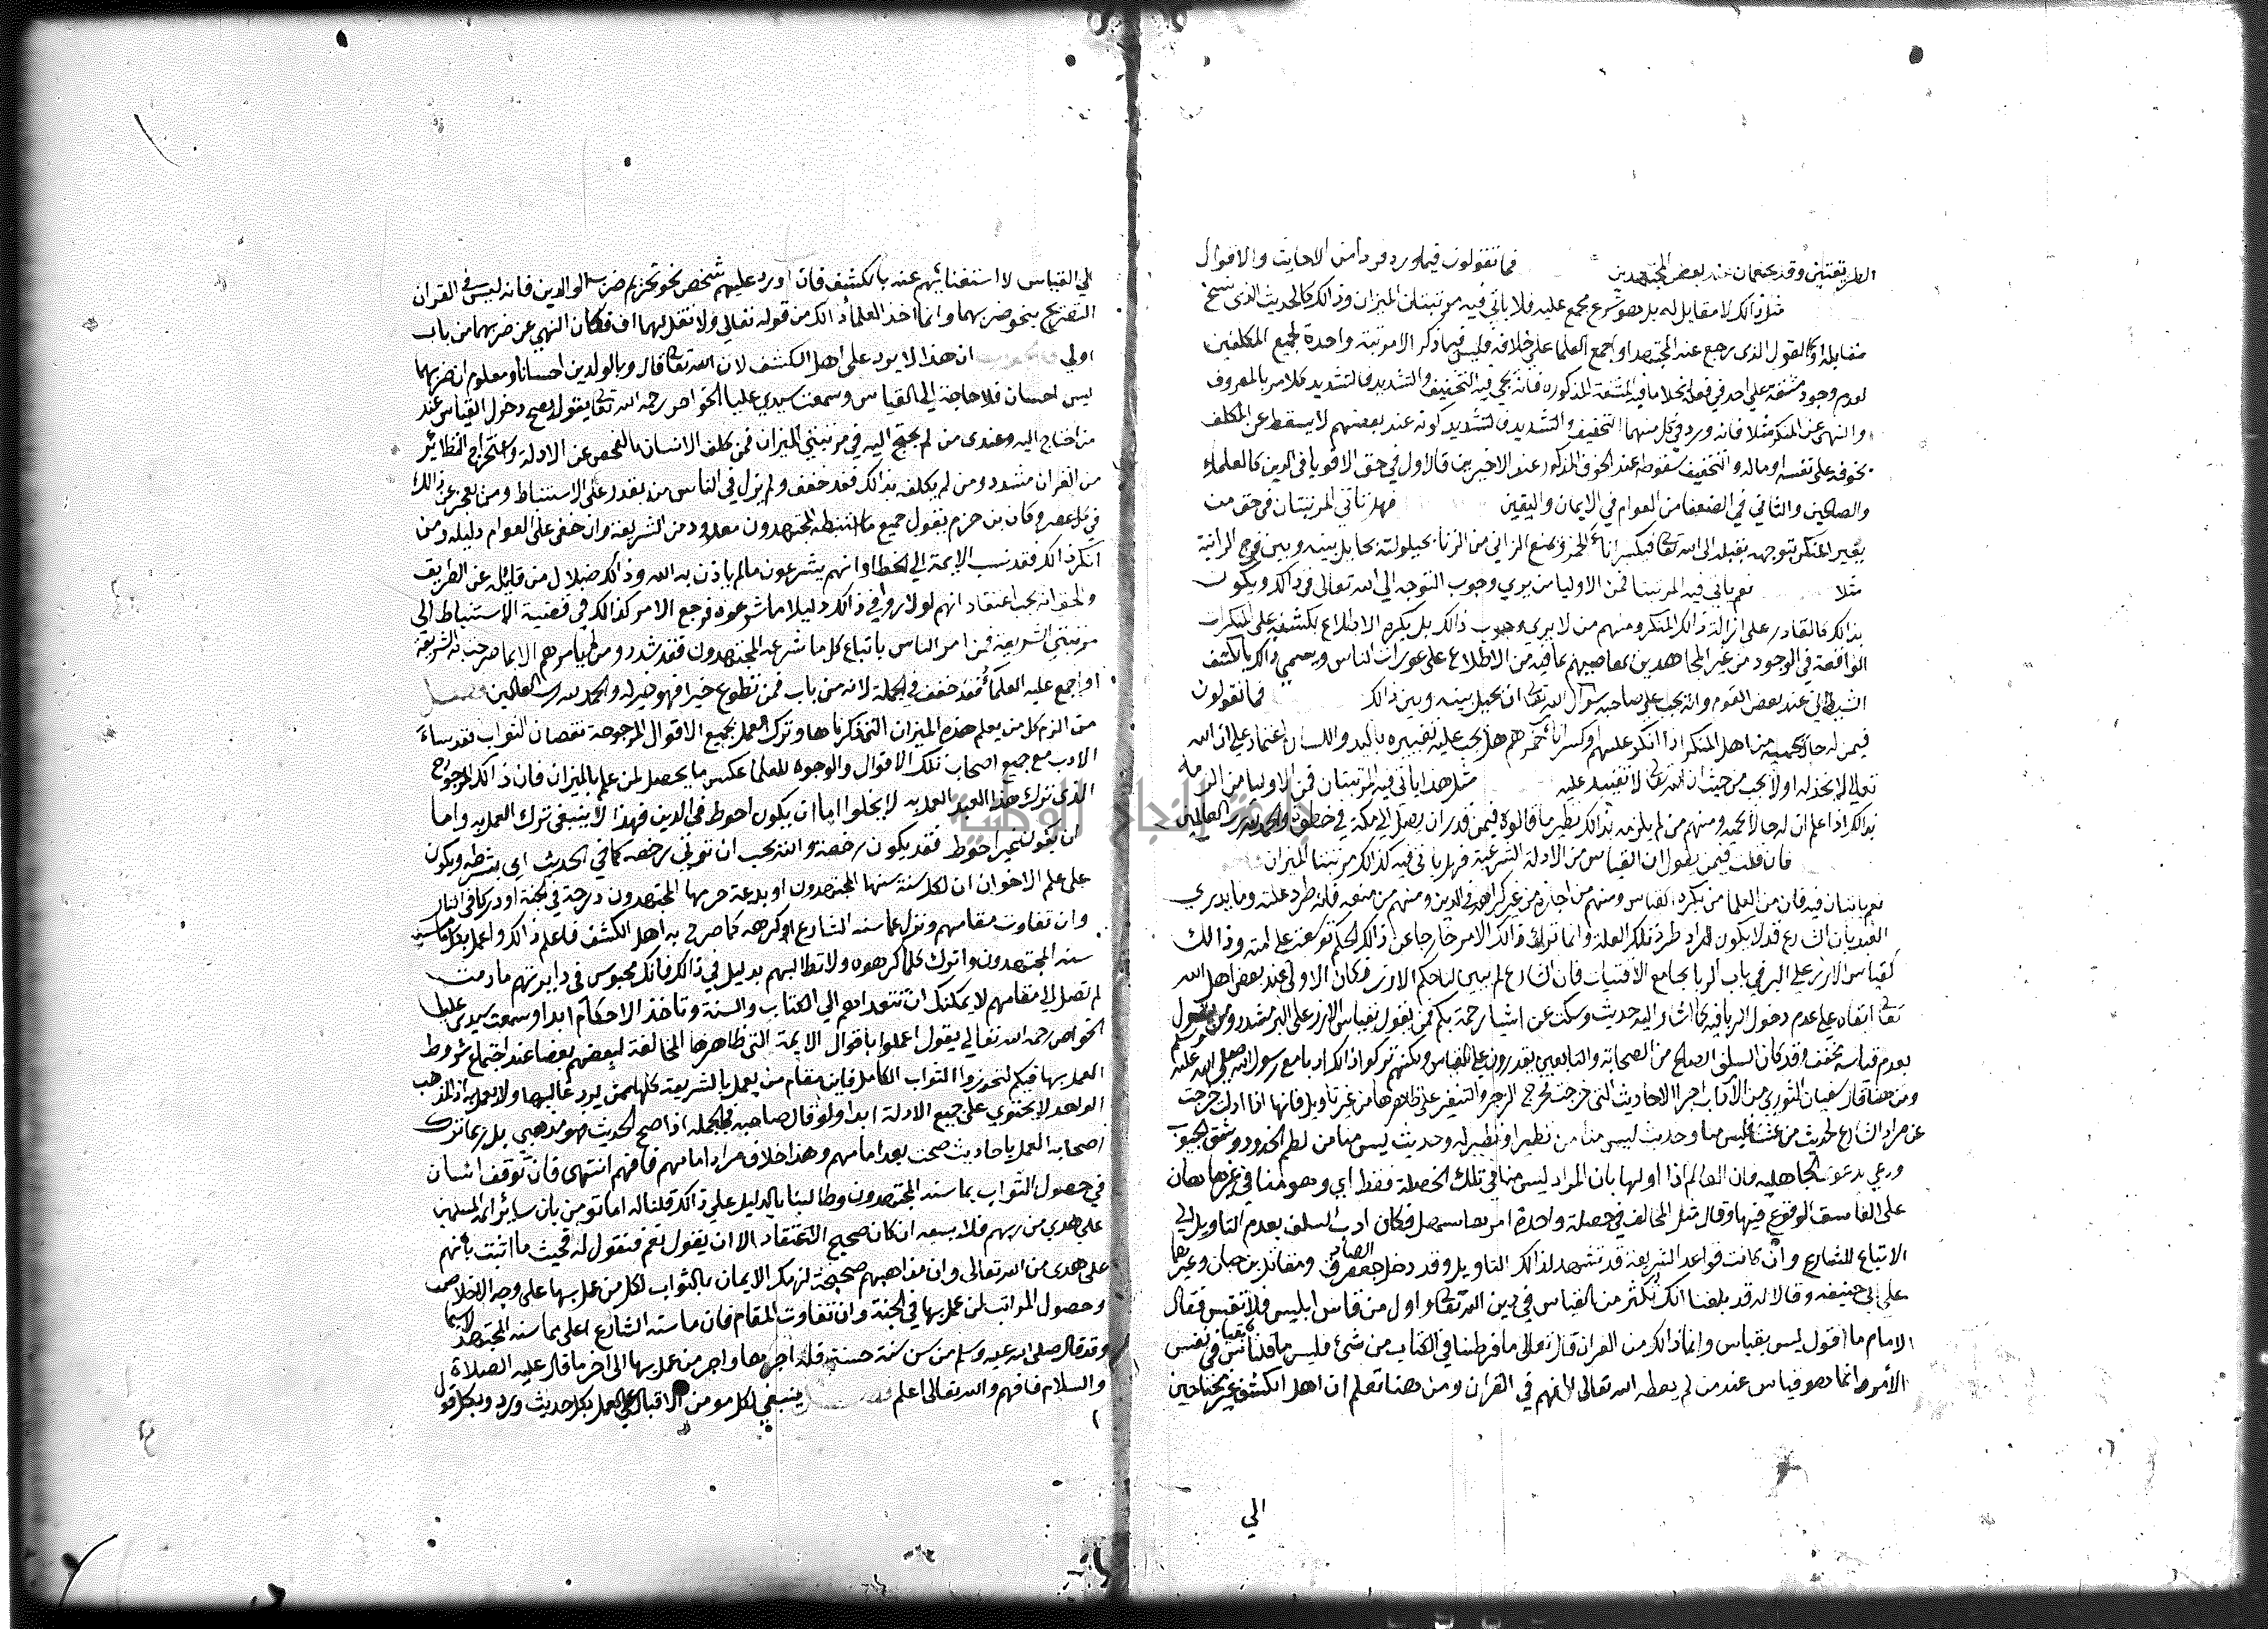 الطريقتين وقد يجتمعان عند بعض المجتهدين فما تقولون فيما ورد فردا من الاحاديث والاقوال
مثل ذالك لا مقابل له بل هو شرع مجمع عليه فلا ياتي فيه مرتبتا الميزان وذالك كالحديث الذي نسخ
مقابله او كالقول الذي رجع عنه المجتهد او اجمع العلما على خلافه فليس فيما ذكر الا مرتبة واحدة لجميع المكلفين
لعدم وجود مشقة على احد في فعله بخلاف ما فيه المشقة المذكوره فانه يجي فيه التخفيف والتشديد فالتشديد كالامر بالمعروف
والنهي عن المنكر مثلا فانه ورد في كل منهما التخفيف والتشديد فالتشديد كونه عند بعضهم لا يسقط عن المكلف
بخوفه على نفسه او ماله والتخفيف سقوطه عند الخوف المذكور عند الاخرين فالاول في حق الاقويا في الدين كالعلماء
والصالحين والثاني في الضعفا من العوام في الايمان واليقين فهل تاتي المرتبتان في حق من
يغير المنكر بتوجهه بقلبه الى الله تعالى فيكسر اناء الخمر ويمنع الزاني من الزنا بحيلولته بحايل بينه وبين فرج الزانية
مثلا نعم ياتي فيه المرتبتا فمن الاوليا من يري وجوب التوجه الى الله تعالى في ذالك ويكون
بذالك كالقادر على ازالة ذالك المنكر ومنهم من لا يري وجوب ذالك بل يكره الاطلاع بكشفه على المنكرات
الواقعة في الوجود من غير المجاهدين بمعاصيهم لما فيه من الاطلاع على عورات الناس ويسمي ذالك بالكشف
الشيطاني عند بعض القوم وانه يجب على صاحبه سوال الله تعالى ان يحيل بينه وبين ذالك فما تقولون
فيمن له حال يحميه من اهل المنكر اذا انكر عليهم او كسر اناء خمرهم هل يجب عليه تغييره باليد واللسان اعتمادا على ان الله
تعالى لا يخذله او لا يجب من حيث ان الله تعالى لا تقييد عليه مثل هذا ياتي فيه المرتبتان فمن الاوليا من الزمه
بذالك اذا علم ان له حالا يحميه ومنهم من لم يلزمه بذالك نظير ما قالوه فيمن قدر ان يصل الى مكة في خطوة والحمد لله رب العالمين
فان قلت فيمن يقول ان القياس من الادلة الشرعية فهل ياتي فيه كذالك مرتبتا الميزان
نعم ياتيان فيه فان من العلما من يكره القياس ومنهم من اجازه من غير كراهه في الدين ومنهم من منعه فانه طرد علته وما يدري
العبد بان الشارع قد لا يكون اراد طرد تلك العلة وانما ترك ذالك الامر خارجا عن ذالك الحكم توسعة على امته وذالك
كقياس الارز على البر في باب الربا بجامع الاقتيات فان الشارع لم يبين لنا حكم الارز فكان الاولى عند بعض اهل الله
تعالى ابقاه على عدم دخول الربا فيه كما اشار اليه حديث وسكت عن اشيا رحمة بكم فمن يقول بقياس الارز على البر مشدد ومن يقول
بعدم قياسه مخفف وقد كان السلف الصالح من الصحابة والتابعين يقدرون على القياس ولكنهم تركوا ذالك ادبا مع رسول الله صلى الله عليه وسلم
ومن هنا قال سفيان الثوري من الادب اجرا الاحاديث التي خرجت مخرج الزجر والتنفير على ظاهرها من غير تاويل فانها اذا اولت خرجت
عن مراد الشارع كحديث من غشنا فليس منا وحديث ليس منا من تطير او تطير له وحديث ليس منا من لطم الخدود وشق الجيوب
ودعي بدعوى الجاهليه فان العالم اذا اولها بان المراد ليس منا في تلك الخصلة فقط اي وهو منا في غيرها هان
على الفاسق الوقوع فيها وقال مثل المخالف في خصلة واحدة امر سهل فكان ادب السلف بعدم التاويل اولى
الاتباع للشارع وان كانت قواعد الشريعة قد تشهد لذالك التاويل وقد دخل جعفر الصادق ومقاتل بن حبان وغيرهما
على ابي حنيفه وقالا له قد بلغنا انك تكثر من القياس في دين الله تعالى واول من قاس ابليس فلا تقس فقال
الامام ما اقول ليس بقياس وانما ذالك من القران قال تعالى ما فرطنا في الكتاب من شئ فليس ما قلناه بقياس في نفس
الأمر وانما هو قياس عند من لم يعطه الله تعالى الفهم في القران ومن هنا تعلم ان اهل الكشف غير محتاجين
الي
الي القياس لاستغنائهم عنه بالكشف فان اورد عليهم شخص نحو تحريم ضرب الوالدين فانه ليس في القران
التصريح بنحو ضربهما وانما اخذ العلماء ذالك من قوله تعالي ولا تقل لهما اف فكان النهي عن ضربهما من باب
اولي ان هذا لا يرد على اهل الكشف لان الله تعالى قال وبالوالدين احسانا ومعلوم ان ضربهما
ليس احسان فلا حاجة الي القياس وسمعت سيدي عليا الخواص رحمه الله تعالى يقول يصح دخول القياس عند
من احتاج اليه وعندي من لم يحتج اليه في مرتبتي الميزان فمن كلف الانسان بالفحص عن الادلة واستخراج النظائر
من القران مشدد ومن لم يكلفه بذالك فقد خفف ولم يزل في الناس من يقدر على الاستنباط ومن يعجز عن ذالك
في كل عصر وكان بن حزم يقول جميع ما استنبطه المجتهدون معدود من الشريعة وان خفي على العوام دليله ومن
انكر ذالك فقد نسب الايمة الي الخطا وانهم يشرعون ما لم ياذن به الله وذالك ضلال من قايله عن الطريق
والحق انه يجب اعتقاد انهم لولا راوا في ذالك دليلا ما شرعوه فرجع الامر كذالك في قضية الاستنباط الى
مرتبتي الشريعة فمن امر الناس باتباع كل ما شرعه المجتهدون فقد شدد ومن لم يامرهم الا بما صرحت به الشريعة
او اجمع عليه العلماء فقد خفف في الجملة لانه من باب فمن تطوع خيرا فهو خير له والحمد لله رب العالمين فصل
من الزم كل من يعلم هذه الميزان التي ذكرناها وترك العمل بجميع الاقوال المرجوحة نقصان الثواب فقد ساء
الادب مع جميع اصحاب تلك الاقوال والوجوه للعلما عكس ما يحصل لمن علم بالميزان فان ذالك المرجوح
الذي ترك هذا العبد العمل به لا يخلوا اما ان يكون احوط في الدين فهذا لا ينبغي ترك العمل به واما
ان يكون غير احوط فقد يكون رخصة والله يحب ان توتي رخصه كما في الحديث اي بشرطه ويكون
على علم الاخوان ان لكل سنة سنها المجتهدون او بدعة حرمها المجتهدون درجة في الجنة او دركا في النار
وان تفاوت مقامهم ونزل عما سنه الشارع او كرهه كما صرح به اهل الكشف فاعلم ذالك واعمل بكل ما
سنه المجتهدون واترك كلما كرهوه ولا تطالبهم بدليل في ذالك فانك محبوس في دايرتهم ما دمت
لم تصل الا مقامهم لا يمكنك ان تتعداهم الي الكتاب والسنة وتاخذ الاحكام ابدا وسمعت سيدي عليا
الخواص رحمه الله تعالي يقول اعملوا باقوال الايمة التي ظاهرها المخالفة لبعضهم بعضا عند اجتماع شروط
العمل بها فيكم لتحوزوا الثواب الكامل فاين مقام من يعمل بالشريعة كلها ممن يرد غالبها ولا يعمل به اذ المذهب
الواحد لا يحتوي على جميع الادلة ابدا ولو قال صاحبه في الجملة اذا صح الحديث فهو مذهبي بل ربما ترك
اصحابه العمل باحاديث صحت بعد امامهم وهذا خلاف مراد امامهم فافهم انتهى فان توقف انسان
في حصول الثواب بما سنه المجتهدون وطالبنا بالدليل على ذالك قلنا له اما تومن بان سائر ائمة المسلمين
على هدي من ربهم فلا يسعه ان كان صحيح الاعتقاد الا ان يقول نعم فنقول له فحيث ما اثبت بانهم
على هدى من الله تعالى وان مذاهبهم صحيحة لزمك الايمان بالثواب لكل من عمل بها على وجه الاخلاص
وحصول المراتب لمن عمل بها في الجنة وان تفاوت المقام فان ما سنه الشارع اعلى مما سنه المجتهد لا سيما
وقد قال صلى الله عليه وسلم من سن سنة حسنة فله اجرها واجر من عمل بها الى اخر ما قال عليه الصلاة
والسلام فافهم والله تعالى اعلم ينبغي لكل مومن الاقبال على العمل بكل حديث ورد وبكل قول